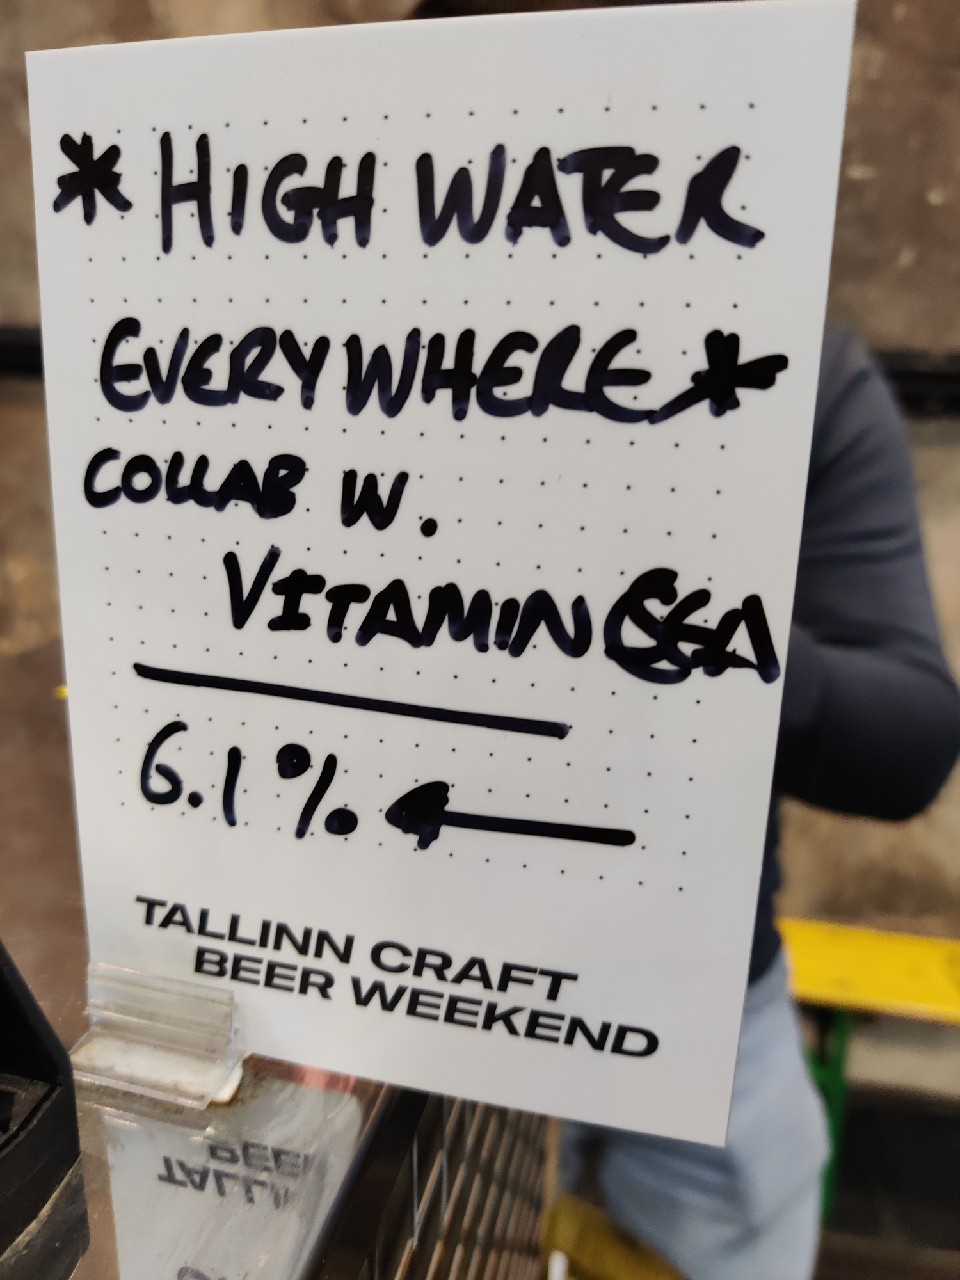 * HIGH WATER
EVERYWHERE *
COLLAB W.
VITAMIN SEA
6.1%
TALLINN CRAFT
BEER WEEKEND
BEE
TALLI